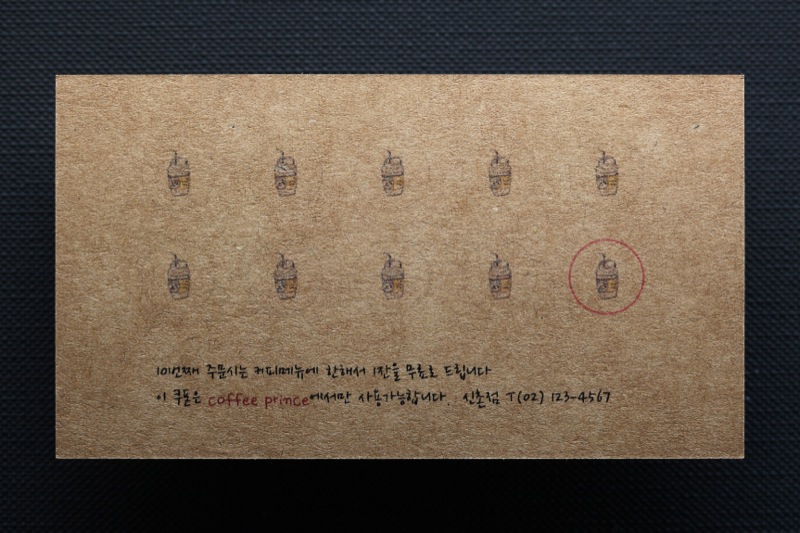 10번째 주문시는 커피메뉴에 한해서 1잔을 무료로 드립니다
이 쿠폰은 coffee prince에서만 사용가능합니다. 신촌점 T(02) 123-4567